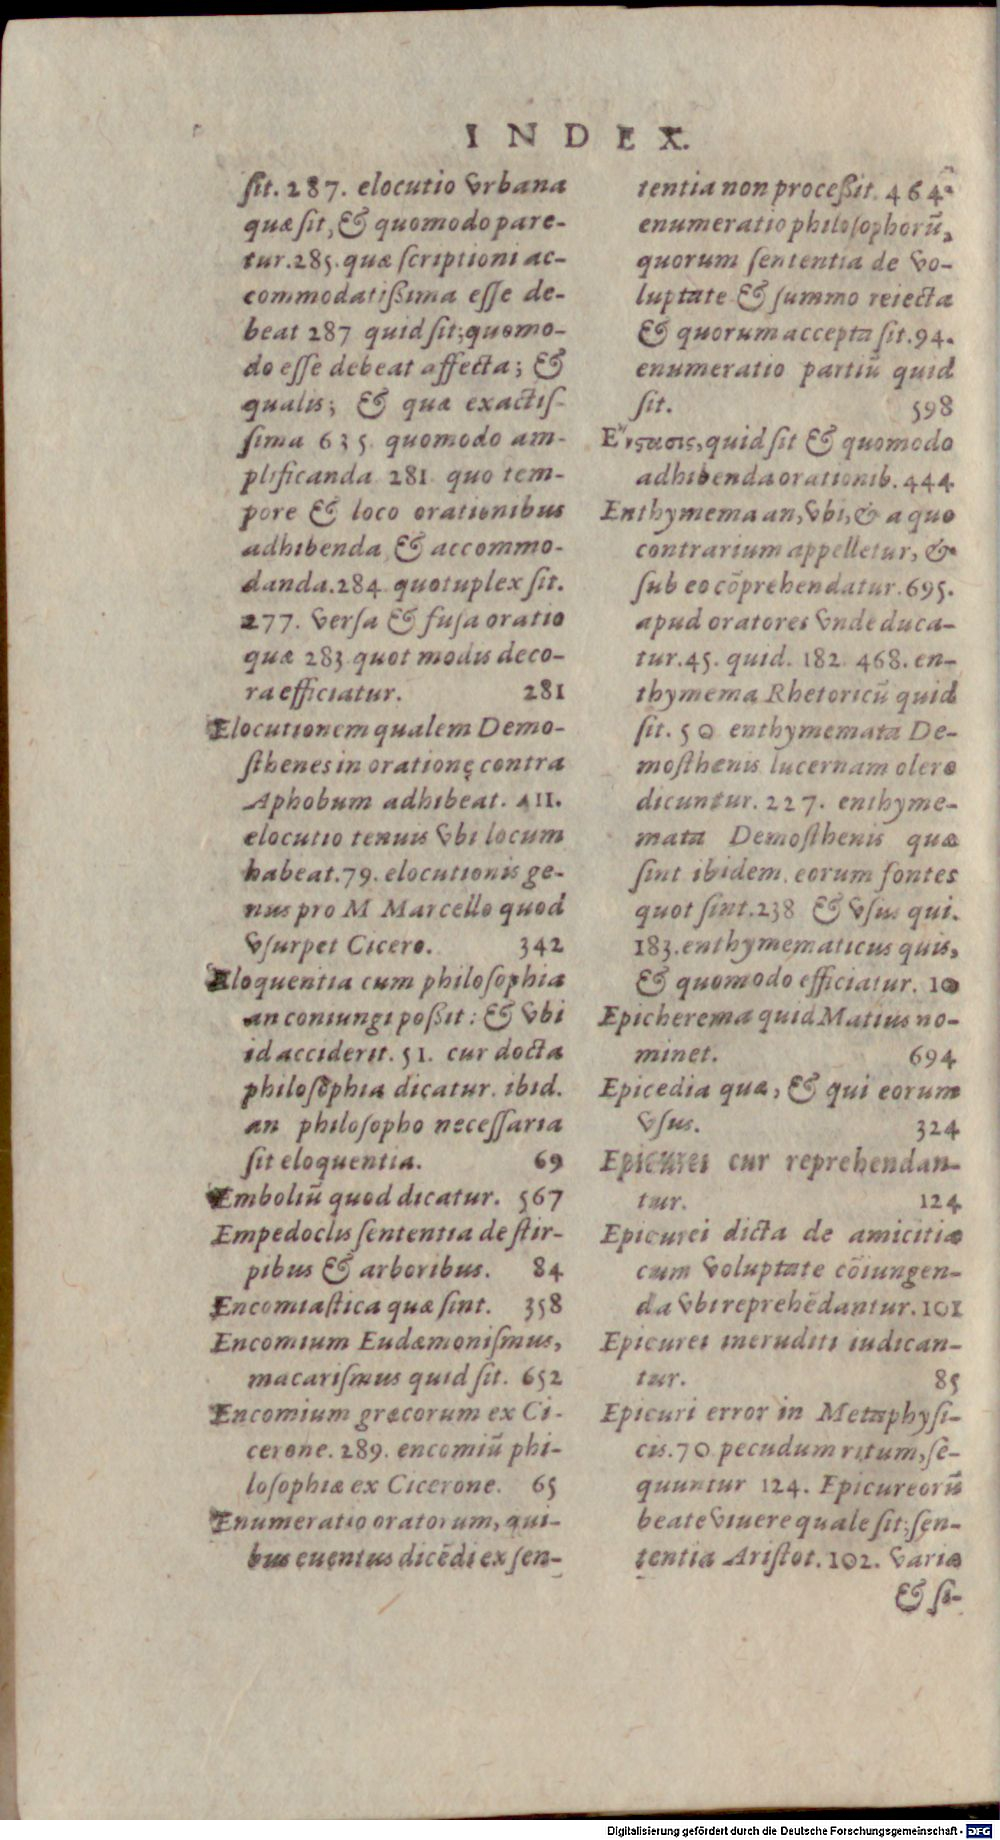 INDEX.
ſit. 287. elocutio vrbana
quæ ſit, & quomodo pare-
tur. 285. quæ ſcriptioni ac-
commodatißima eſſe de-
beat 287 quid ſit; quomo-
do eſſe debeat affecta; &
qualis; & quæ exactiſ-
ſima 635. quomodo am-
plificanda 281 quo tem-
pore & loco orationibus
adhibenda & accommo-
danda. 284 quotuplex ſit.
277. verſa & fuſa oratio
quæ 283 quot modis deco-
ra efficiatur. 281
Elocutionem qualem Demo-
ſthenes in oratione contra
Aphobum adhibeat. 411.
elocutio tenuis vbi locum
habeat. 79. elocutionis ge-
nus pro M Marcello quod
vſurpet Cicero. 342
Eloquentia cum philoſophia
an coniungi poßit: & vbi
id acciderit. 51. cur docta
philoſophia dicatur. ibid.
an philoſopho neceſſaria
ſit eloquentia. 69
Emboliū quod dicatur. 567
Empedoclis ſententia de ſtir-
pibus & arboribus. 84
Encomiaſtica quæ ſint. 358
Encomium Eudæmoniſmus,
macariſmus quid ſit. 652
Encomium græcorum ex Ci-
cerone. 289. encomiū phi-
loſophiæ ex Cicerone. 65
Enumeratio oratorum, qui-
bus euentus dicēdi ex ſen-
tentia non proceßit. 464
enumeratio philoſophorū,
quorum ſententia de vo-
luptate & ſummo reiecta
& quorum accepta ſit. 94.
enumeratio partiū quid
ſit. 598
Ἔνςασις, quid ſit & quomodo
adhibenda orationib. 444
Enthymema an, vbi, & a quo
contrarium appelletur, &
ſub eo cōprehendatur. 695.
apud oratores vnde duca-
tur. 45. quid. 182 468. en-
thymema Rhetoricū quid
ſit. 50 enthymemata De-
moſthenis lucernam olere
dicuntur. 227. enthyme-
mata Demoſthenis quæ
ſint ibidem. eorum fontes
quot ſint. 238 & vſus qui.
183. enthymematicus quis,
& quomodo efficiatur. 10
Epicherema quid Matius no-
minet. 694
Epicedia quæ, & qui eorum
vſus. 324
Epicurei cur reprehendan-
tur. 124
Epicurei dicta de amicitia
cum voluptate cōiungen-
da vbi reprehēdantur. 101
Epicurei ineruditi iudican-
tur. 85
Epicuri error in Metaphyſi-
cis. 70 pecudum ritum, ſe-
quuntur 124. Epicureorū
beate viuere quale ſit; ſen-
tentia Ariſtot. 102. varia
& ſi-
Digitalisierung gefördert durch die Deutsche Forschungsgemeinschaft - DFG